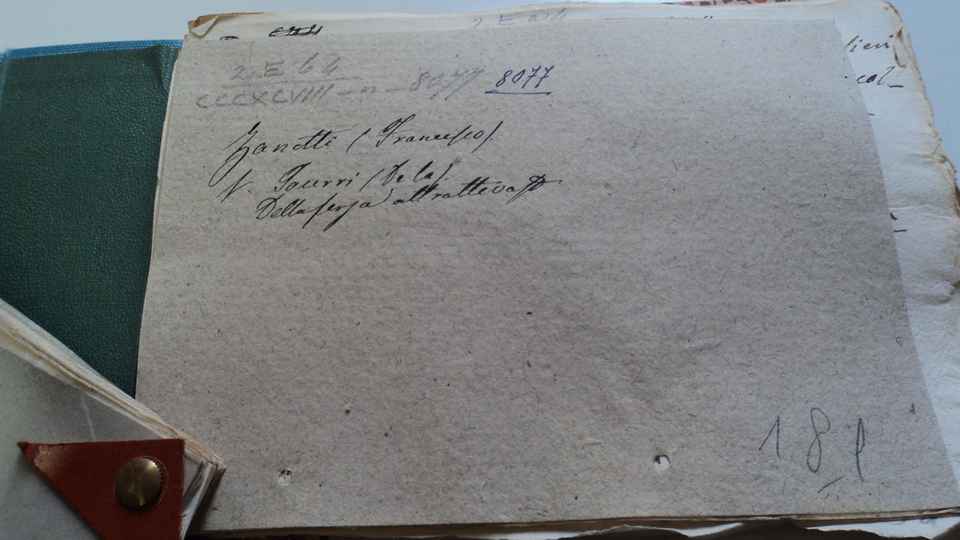 2 E 64
CCCXCVIII - n - 8077 8077
Zanotti (Francesco).
V.
Della forza attrattiva
lieri
col-
18